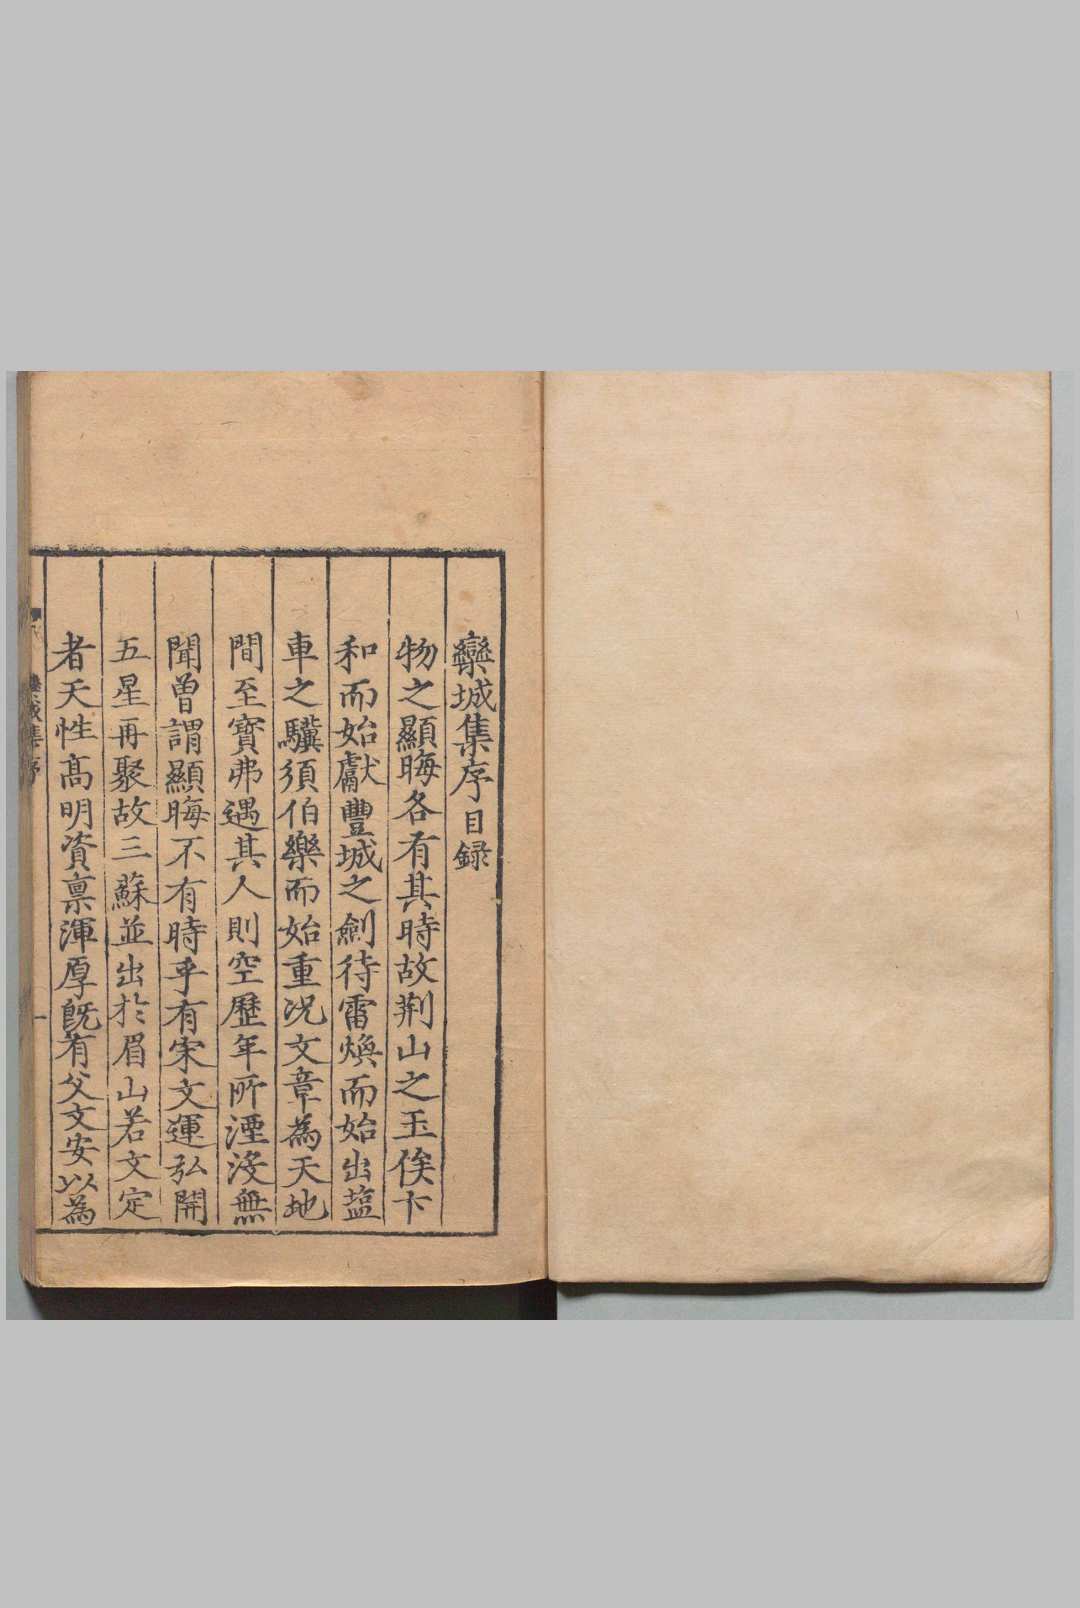 欒城集序目録
物之顯晦各有其時故荆山之玉俟卞
和而始獻豐城之劍待雷煥而始出塩
車之驥須伯樂而始重况文章為天地
間至寶弗遇其人則空歷年所湮没無
聞曽謂顯晦不有時乎有宋文運弘開
五星再聚故三蘇並出於眉山若文定
者天性髙明資禀渾厚旣有父文安以為
城集序
一